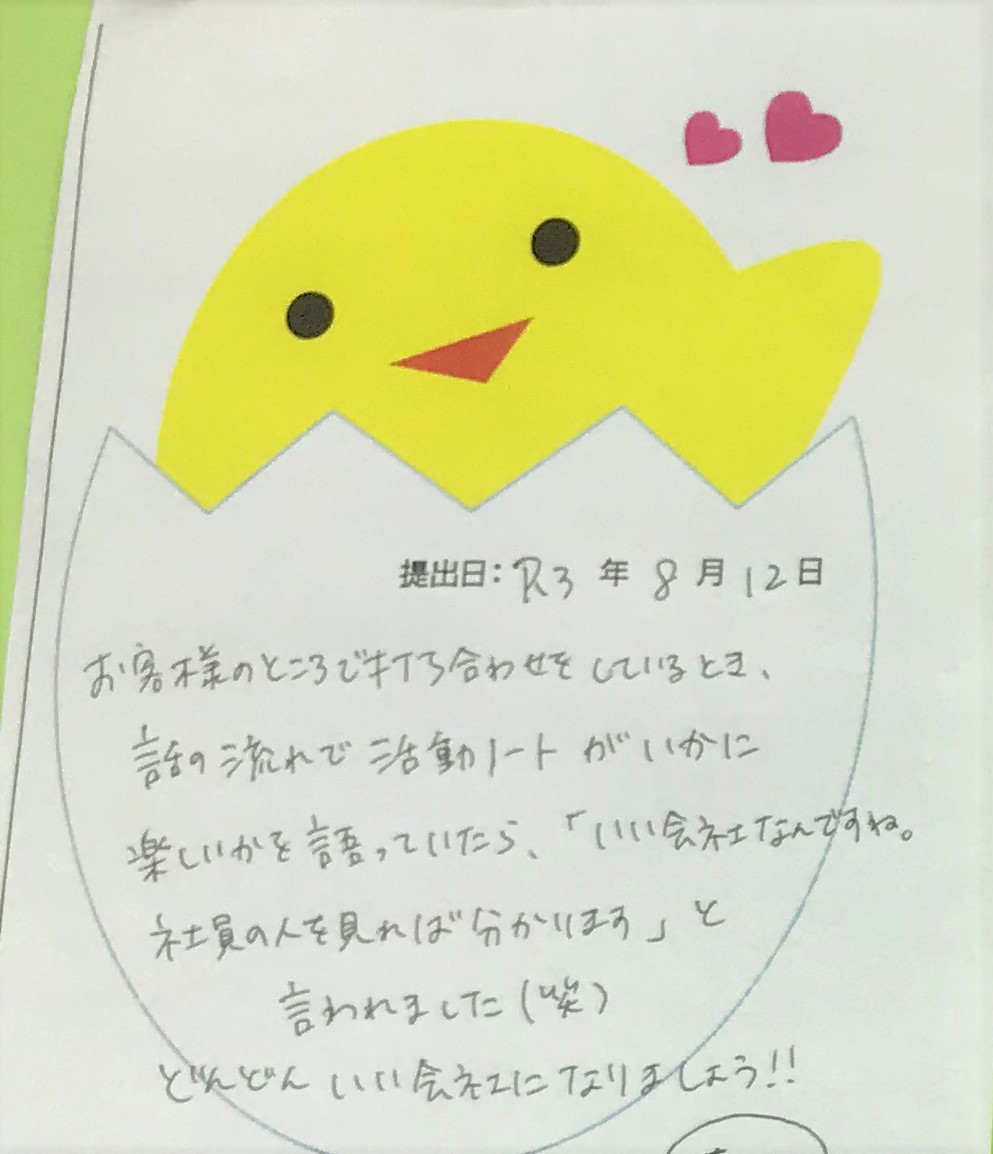 提出日：R3 年 8 月 12 日
お客様のところで打ち合わせをしているとき、
話の流れで活動ノートがいかに
楽しいかを語っていたら、「いい会社なんですね。
社員の人を見れば分かります」と
言われました（笑）
どんどんいい会社になりましょう!!